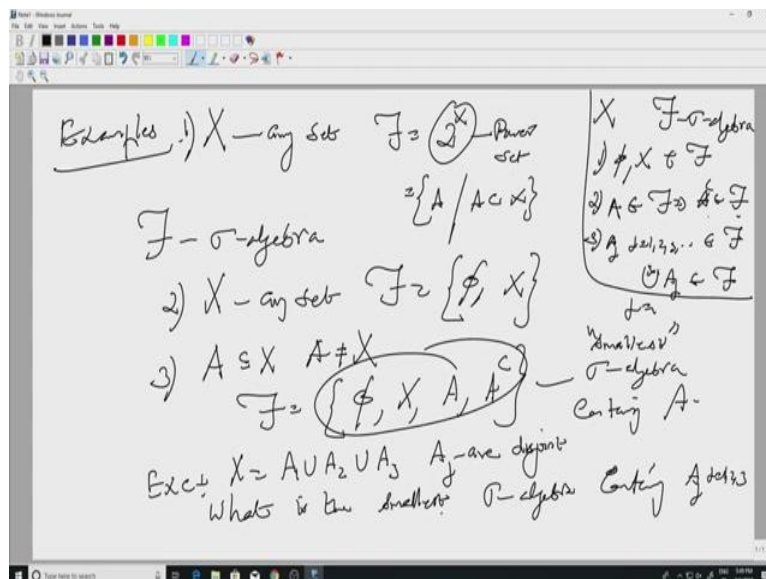 Note1 - Windows Journal
File Edit View Insert Actions Tools Help
Examples 1) X — any set ℱ = 2^X — Power set
= {A / A ⊂ X}
ℱ - σ-algebra
2) X - any set ℱ = {ϕ, X}
3) A ⊆ X A ≠ X
ℱ = {ϕ, X, A, A^c} — "Smallest" σ-algebra Containg A.
Exc: X = A ∪ A_2 ∪ A_3 A_j - are disjoint
What is the smallest σ-algebra Containg A_j j=1,2,3
X ℱ-σ-algebra
1) ϕ, X ∈ ℱ
2) A ∈ ℱ ⇒ A^c ∈ ℱ
3) A_j j=1,2,... ∈ ℱ
∪ A_j ∈ ℱ
j=1
Type here to search